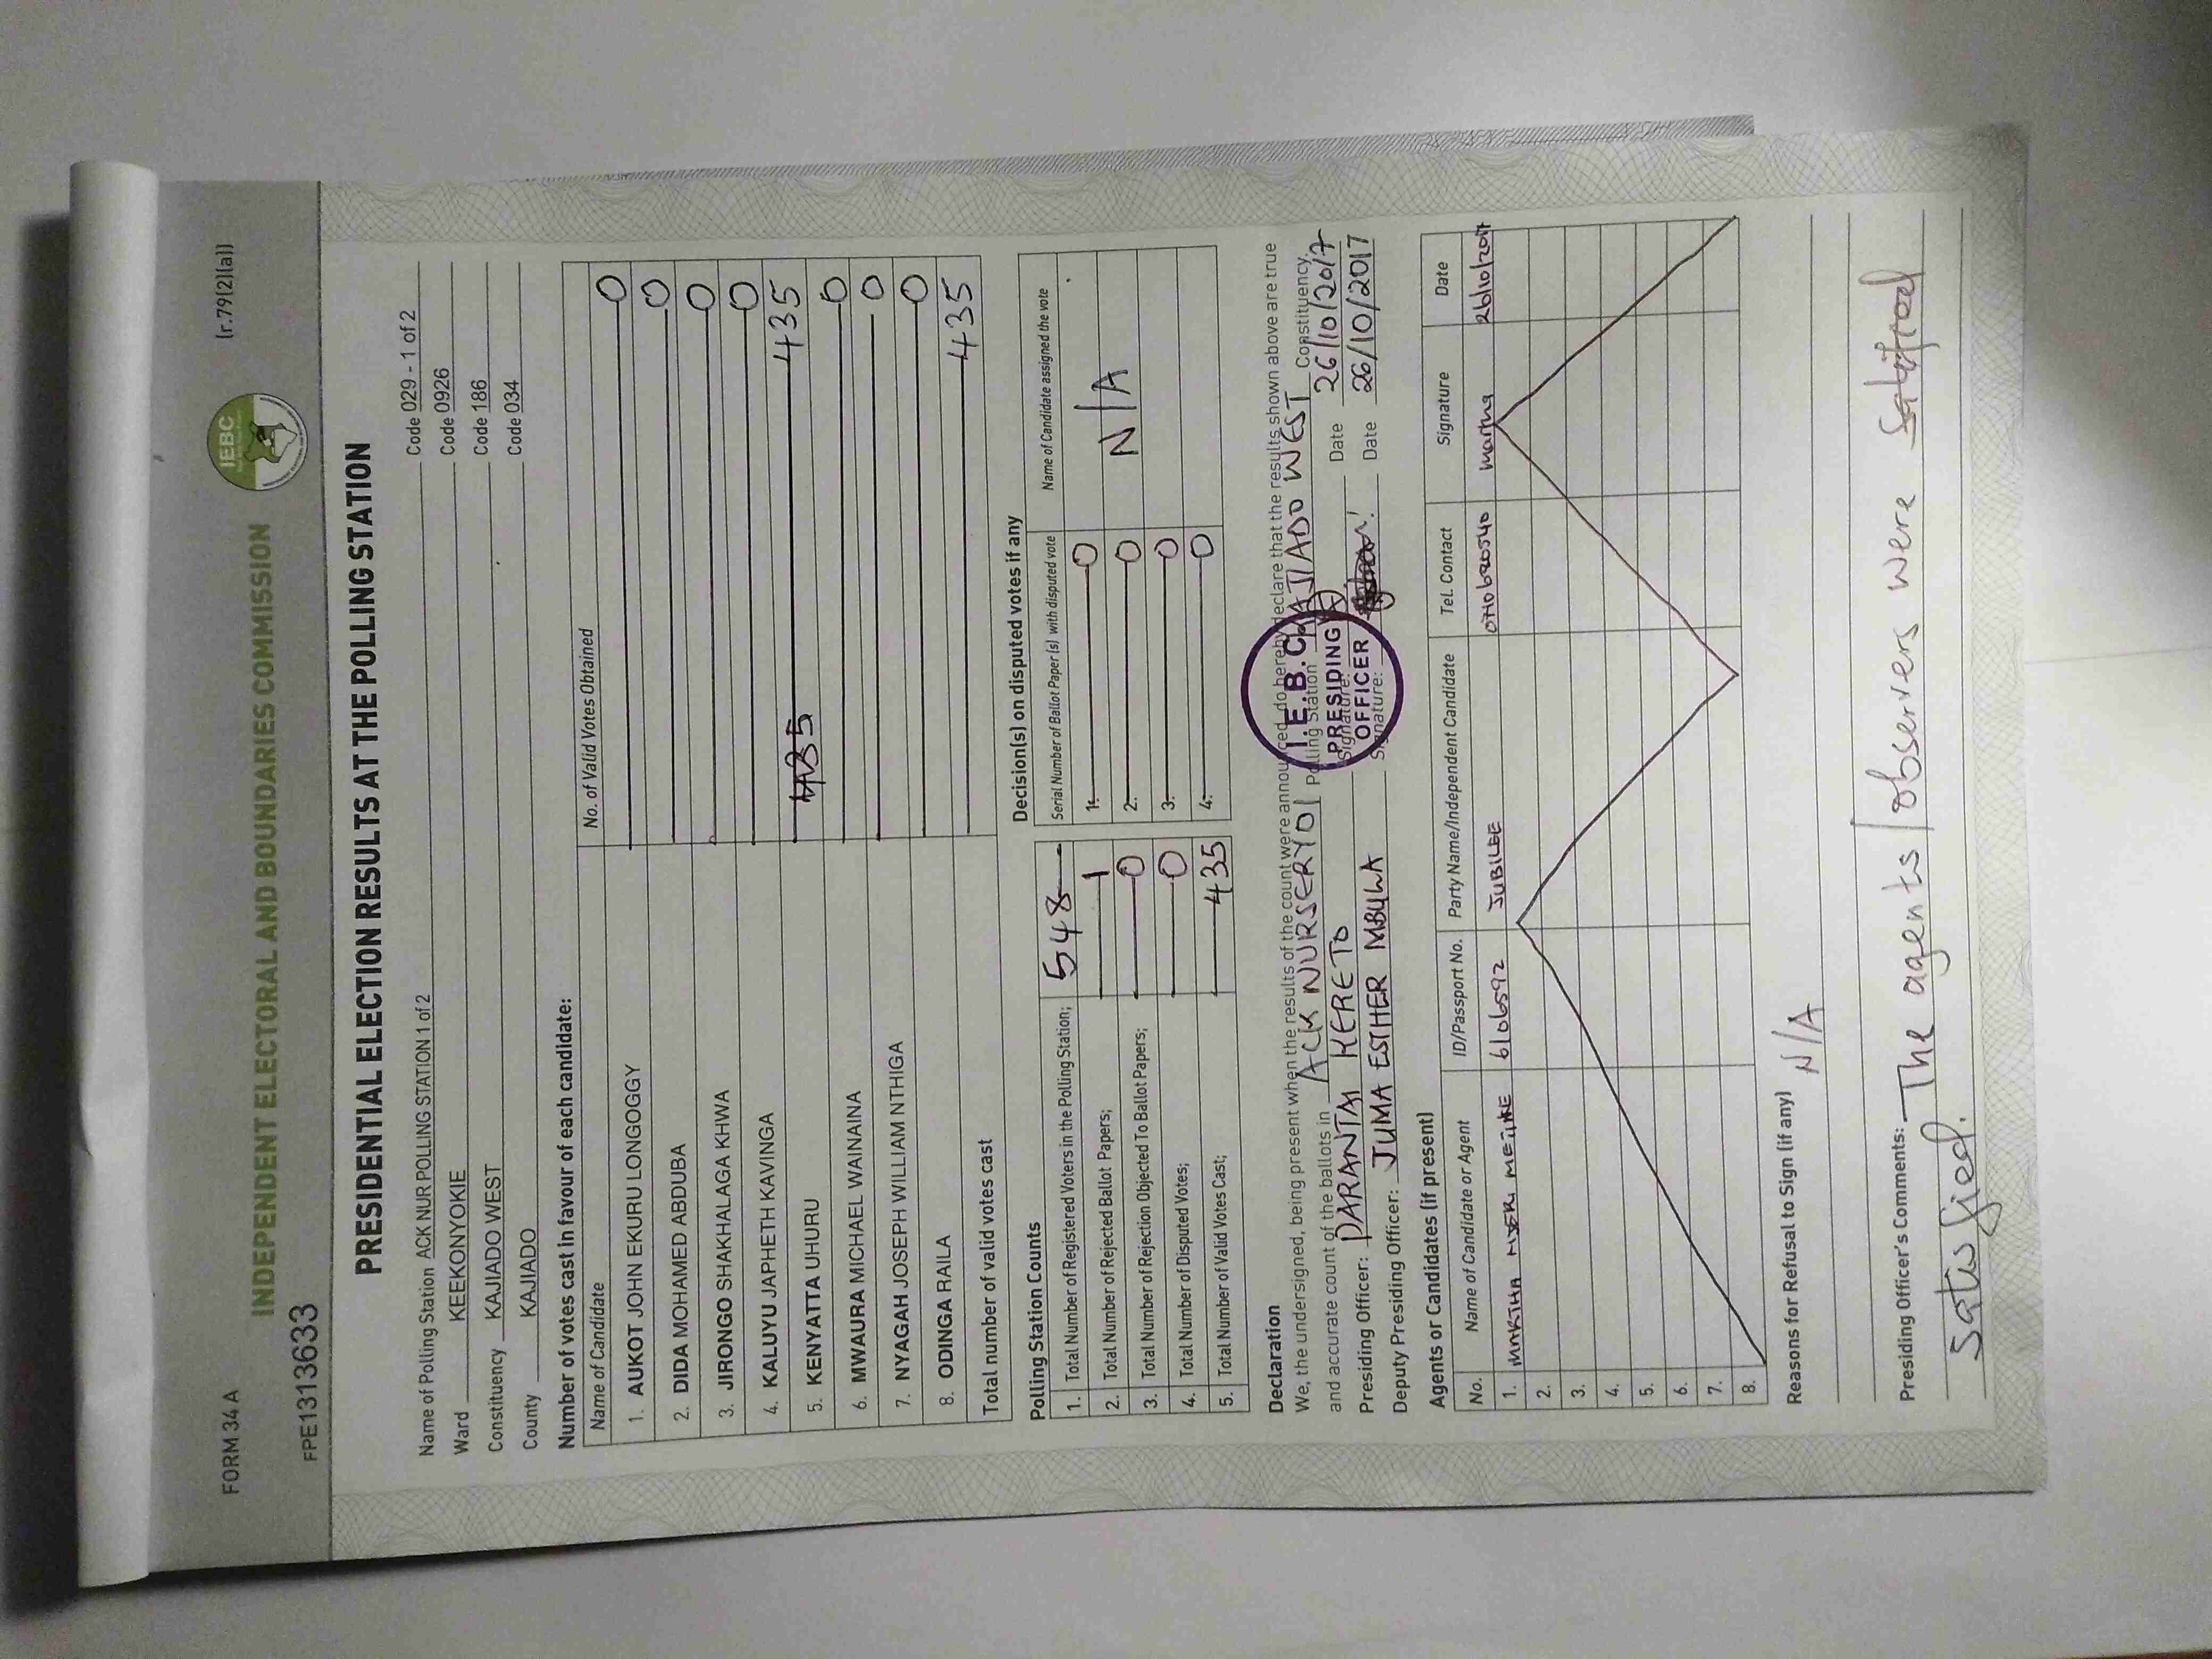 FORM 34 A
(r.79(2)(a))
INDEPENDENT ELECTORAL AND BOUNDARIES COMMISSION
IEBC
FPE1313633
PRESIDENTIAL ELECTION RESULTS AT THE POLLING STATION
Name of Polling Station ACK NUR POLLING STATION 1 of 2 Code 029 - 1 of 2
Ward KEEKONYOKIE Code 0926
Constituency KAJIADO WEST Code 186
County KAJIADO Code 034
Number of votes cast in favour of each candidate:
Name of Candidate No. of Valid Votes Obtained
1. AUKOT JOHN EKURU LONGOGGY 0
2. DIDA MOHAMED ABDUBA 0
3. JIRONGO SHAKHALAGA KHWA 0
4. KALUYU JAPHETH KAVINGA 0
5. KENYATTA UHURU 435
6. MWAURA MICHAEL WAINAINA 0
7. NYAGAH JOSEPH WILLIAM NTHIGA 0
8. ODINGA RAILA 0
Total number of valid votes cast 435
Polling Station Counts
1. Total Number of Registered Voters in the Polling Station; 548
2. Total Number of Rejected Ballot Papers; 1
3. Total Number of Rejection Objected To Ballot Papers; 0
4. Total Number of Disputed Votes; 0
5. Total Number of Valid Votes Cast; 435
Decision(s) on disputed votes if any
Serial Number of Ballot Paper (s) with disputed vote Name of Candidate assigned the vote
1. 0
2. 0 N/A
3. 0
4. 0
Declaration
We, the undersigned, being present when the results of the count were announced, do hereby declare that the results shown above are true
and accurate count of the ballots in ACK NURSERY 01 Polling Station KAJIADO WEST Constituency.
Presiding Officer: DARANTAI KERETO Signature: Date 26/10/2017
Deputy Presiding Officer: JUMA ESTHER MBULA Signature: Date 26/10/2017
I.E.B.C
PRESIDING
OFFICER
Agents or Candidates (if present)
No. Name of Candidate or Agent ID/Passport No. Party Name/Independent Candidate Tel. Contact Signature Date
1. MARTHA 6106592 JUBILEE 0710620540 martha 26/10/2017
2.
3.
4.
5.
6.
7.
8.
Reasons for Refusal to Sign (if any)
N/A
Presiding Officer's Comments: The agents/observers were
Satisfied.